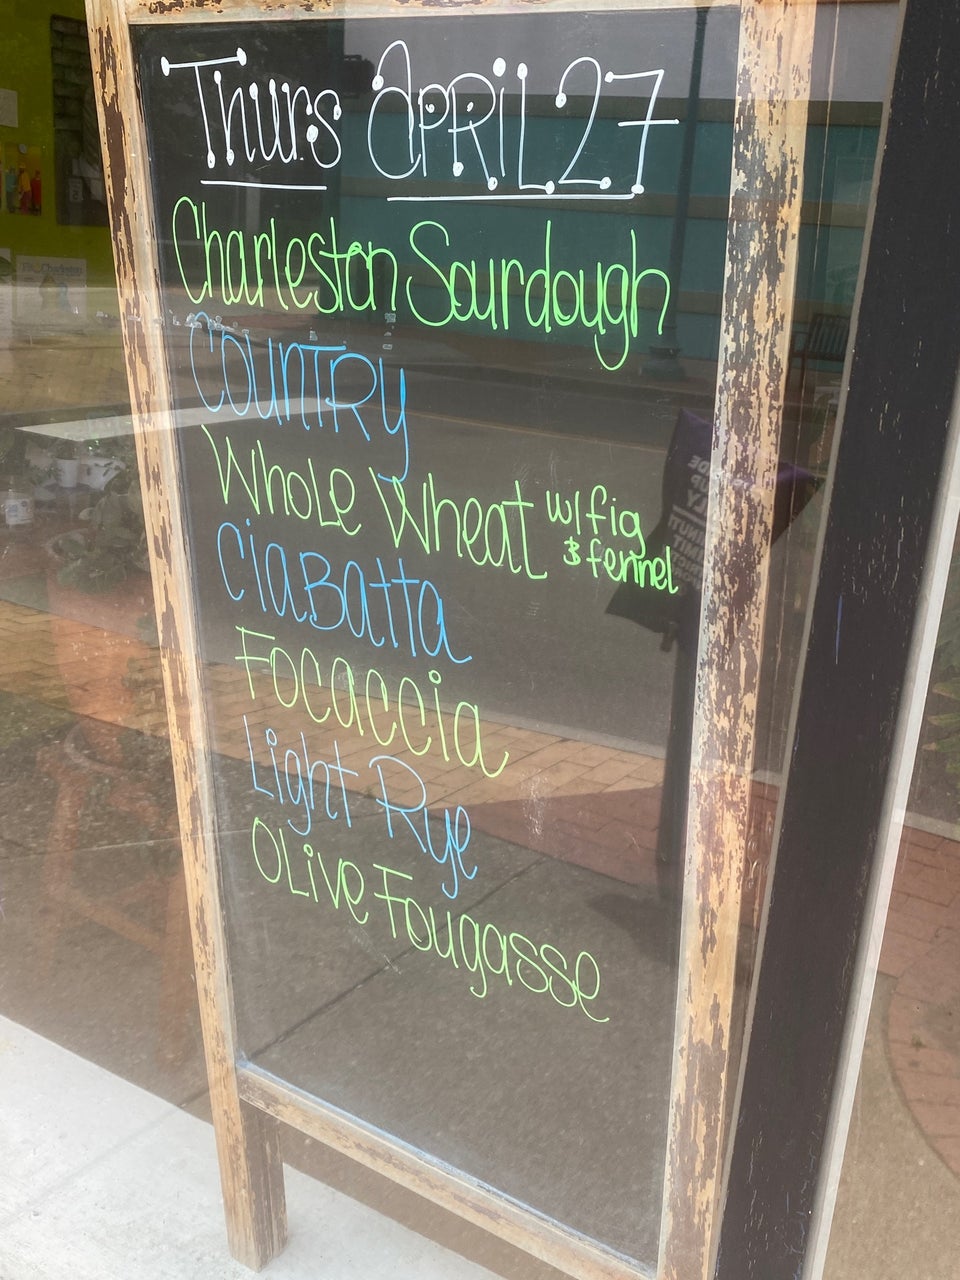 Thurs APRIL 27
Charleston Sourdough
COUNTRY
WHOLE Wheat w/ fig
& fennel
CIABatta
Focaccia
Light Rye
OLive Fougasse